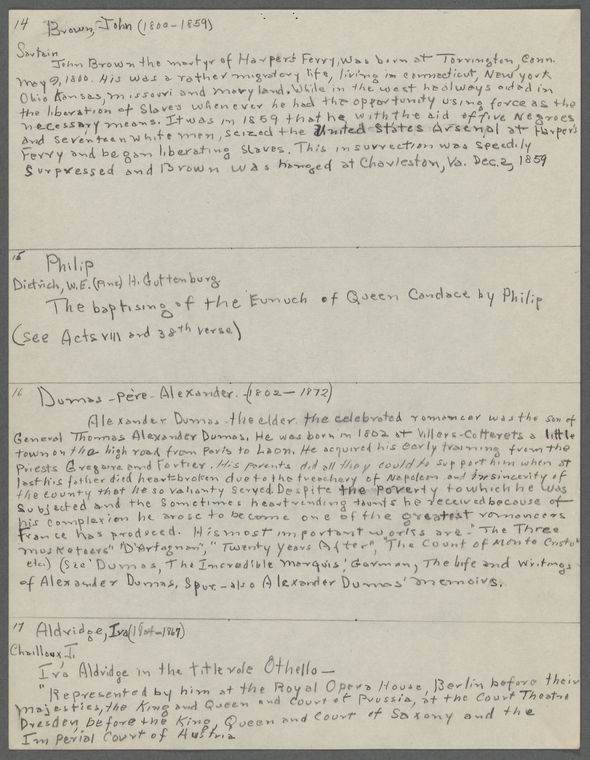 14 Brown, John (1800-1859)
Sartain
John Brown the martyr of Harpers Ferry, was born at Torrington, Conn.
May 9, 1800. His was a rather migratory life, living in Connecticut, New York
Ohio Kansas, Missouri and Maryland. While in the west he always aided in
the liberation of Slaves whenever he had the opportunity using force as the
necessary means. It was in 1859 that he, with the aid of five Negroes
and seventeen white men, seized the United States Arsenal at Harper's
Ferry and began liberating slaves. This insurrection was speedily
Surpressed and Brown was hanged at Charleston, Va. Dec. 2, 1859
15 Philip
Dietrich, W.E. (and) H. Guttenburg
The baptising of the Eunuch of Queen Candace by Philip
(see Acts VIII and 38th verse)
16 Dumas-père-Alexander. (1802-1872)
Alexander Dumas-the elder. the celebrated romancer was the son of
General Thomas Alexander Dumas. He was born in 1802 at Villers-Cotterets a little
town on the high road from Paris to Laon. He acquired his early training from the
Priests Gregoire and Fortier. His parents did all they could to support him when at
last his father died heartbroken due to the treachery of Napoleon and insincerity of
the county that he so valianty served. Despite the Poverty to which he was
subjected and the sometimes heartrending taunts he received because of
his complexion he arose to become one of the greatest romancers
France has produced. His most important works are- "The Three
musketeers" "D'Artagnan", "Twenty Years After", "The Count of Monte Cristo"
etc.) (See 'Dumas, The Incredible Marquis', Gorman, The Life and Writings
of Alexander Dumas, Spur-also Alexander Dumas' memoirs.
17 Aldridge, Ira ( -1867)
Chailloux I.
Ira Aldridge in the title role Othello-
"Represented by him at the Royal Opera House, Berlin before their
majesties, the King and Queen and Court of Prussia, at the Court Theatre
Dresden before the King, Queen and Court of Saxony and the
Imperial Court of Austria